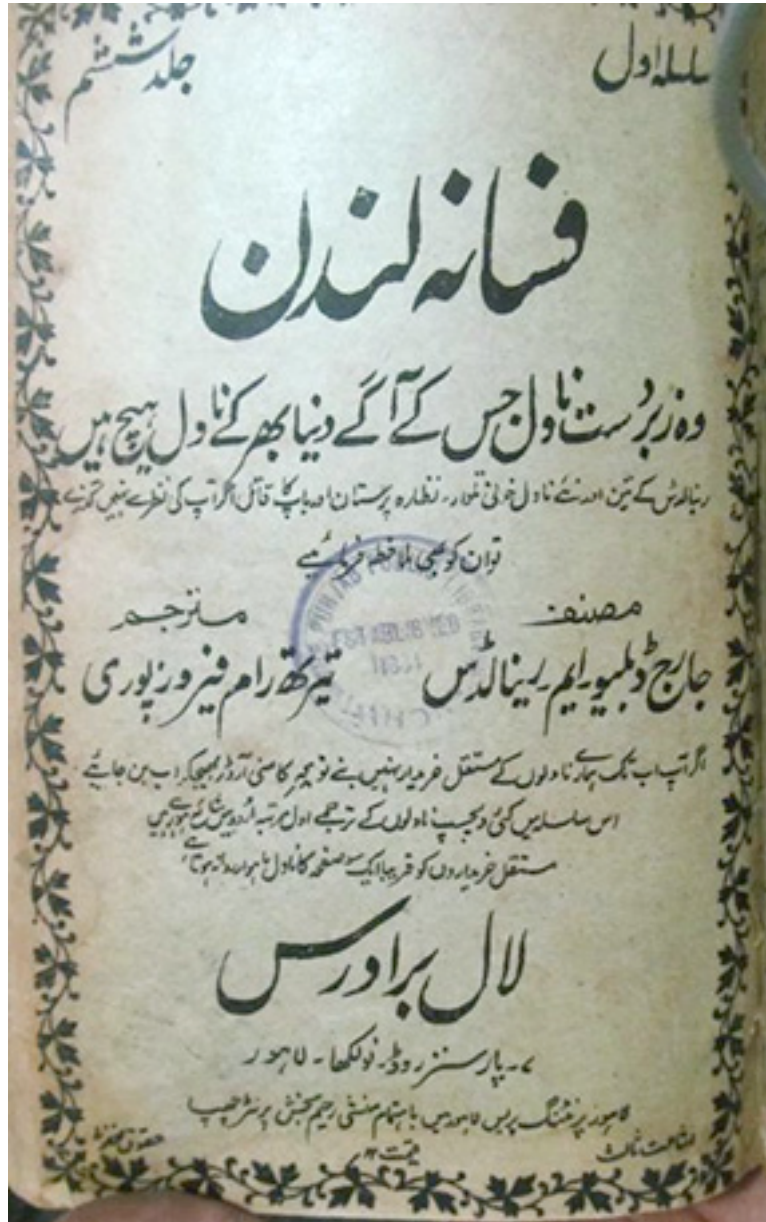 سلسلہ اول
جلد ششم
فسانہ لندن
وہ زبردست ناول جس کے آگے دنیا بھر کے ناول ہیچ ہیں
رینالڈس کے تین اور نئے ناول خونی تلوار۔ نظارہ پرستان اور باپ کا قاتل اگر آپ کی نظر سے نہیں گذرے
توان کو بھی ملاحظہ فرمائیے
مصنف
مترجم
جارج ڈبلیو۔ ایم۔ رینالڈس
تیرتھ رام فیروزپوری
اگر آپ اب تک ہمارے ناولوں کے مستقل خریدار نہیں بنے تو کا منی آرڈر بھیجکر اب بن جایئے
اس سلسلہ میں کئی دلچسپ ناولوں کے ترجمے اول مرتبہ اردو میں شائع ہو رہے ہیں
مستقل خریداروں کو قریباً ایک سو صفحہ کا ناول ماہوار روانہ ہوتا ہے
لال برادرس
۷۔ پارسنز روڈ۔ نولکھا۔ لاہور
لاہور پرنٹنگ پریس لاہور میں باہتمام منشی رحیم بخش پرنٹر چھپا
اشاعت ثالث
قیمت
حقوق محفوظ
PUNJAB PUBLIC LIBRARY
ESTABLISHED